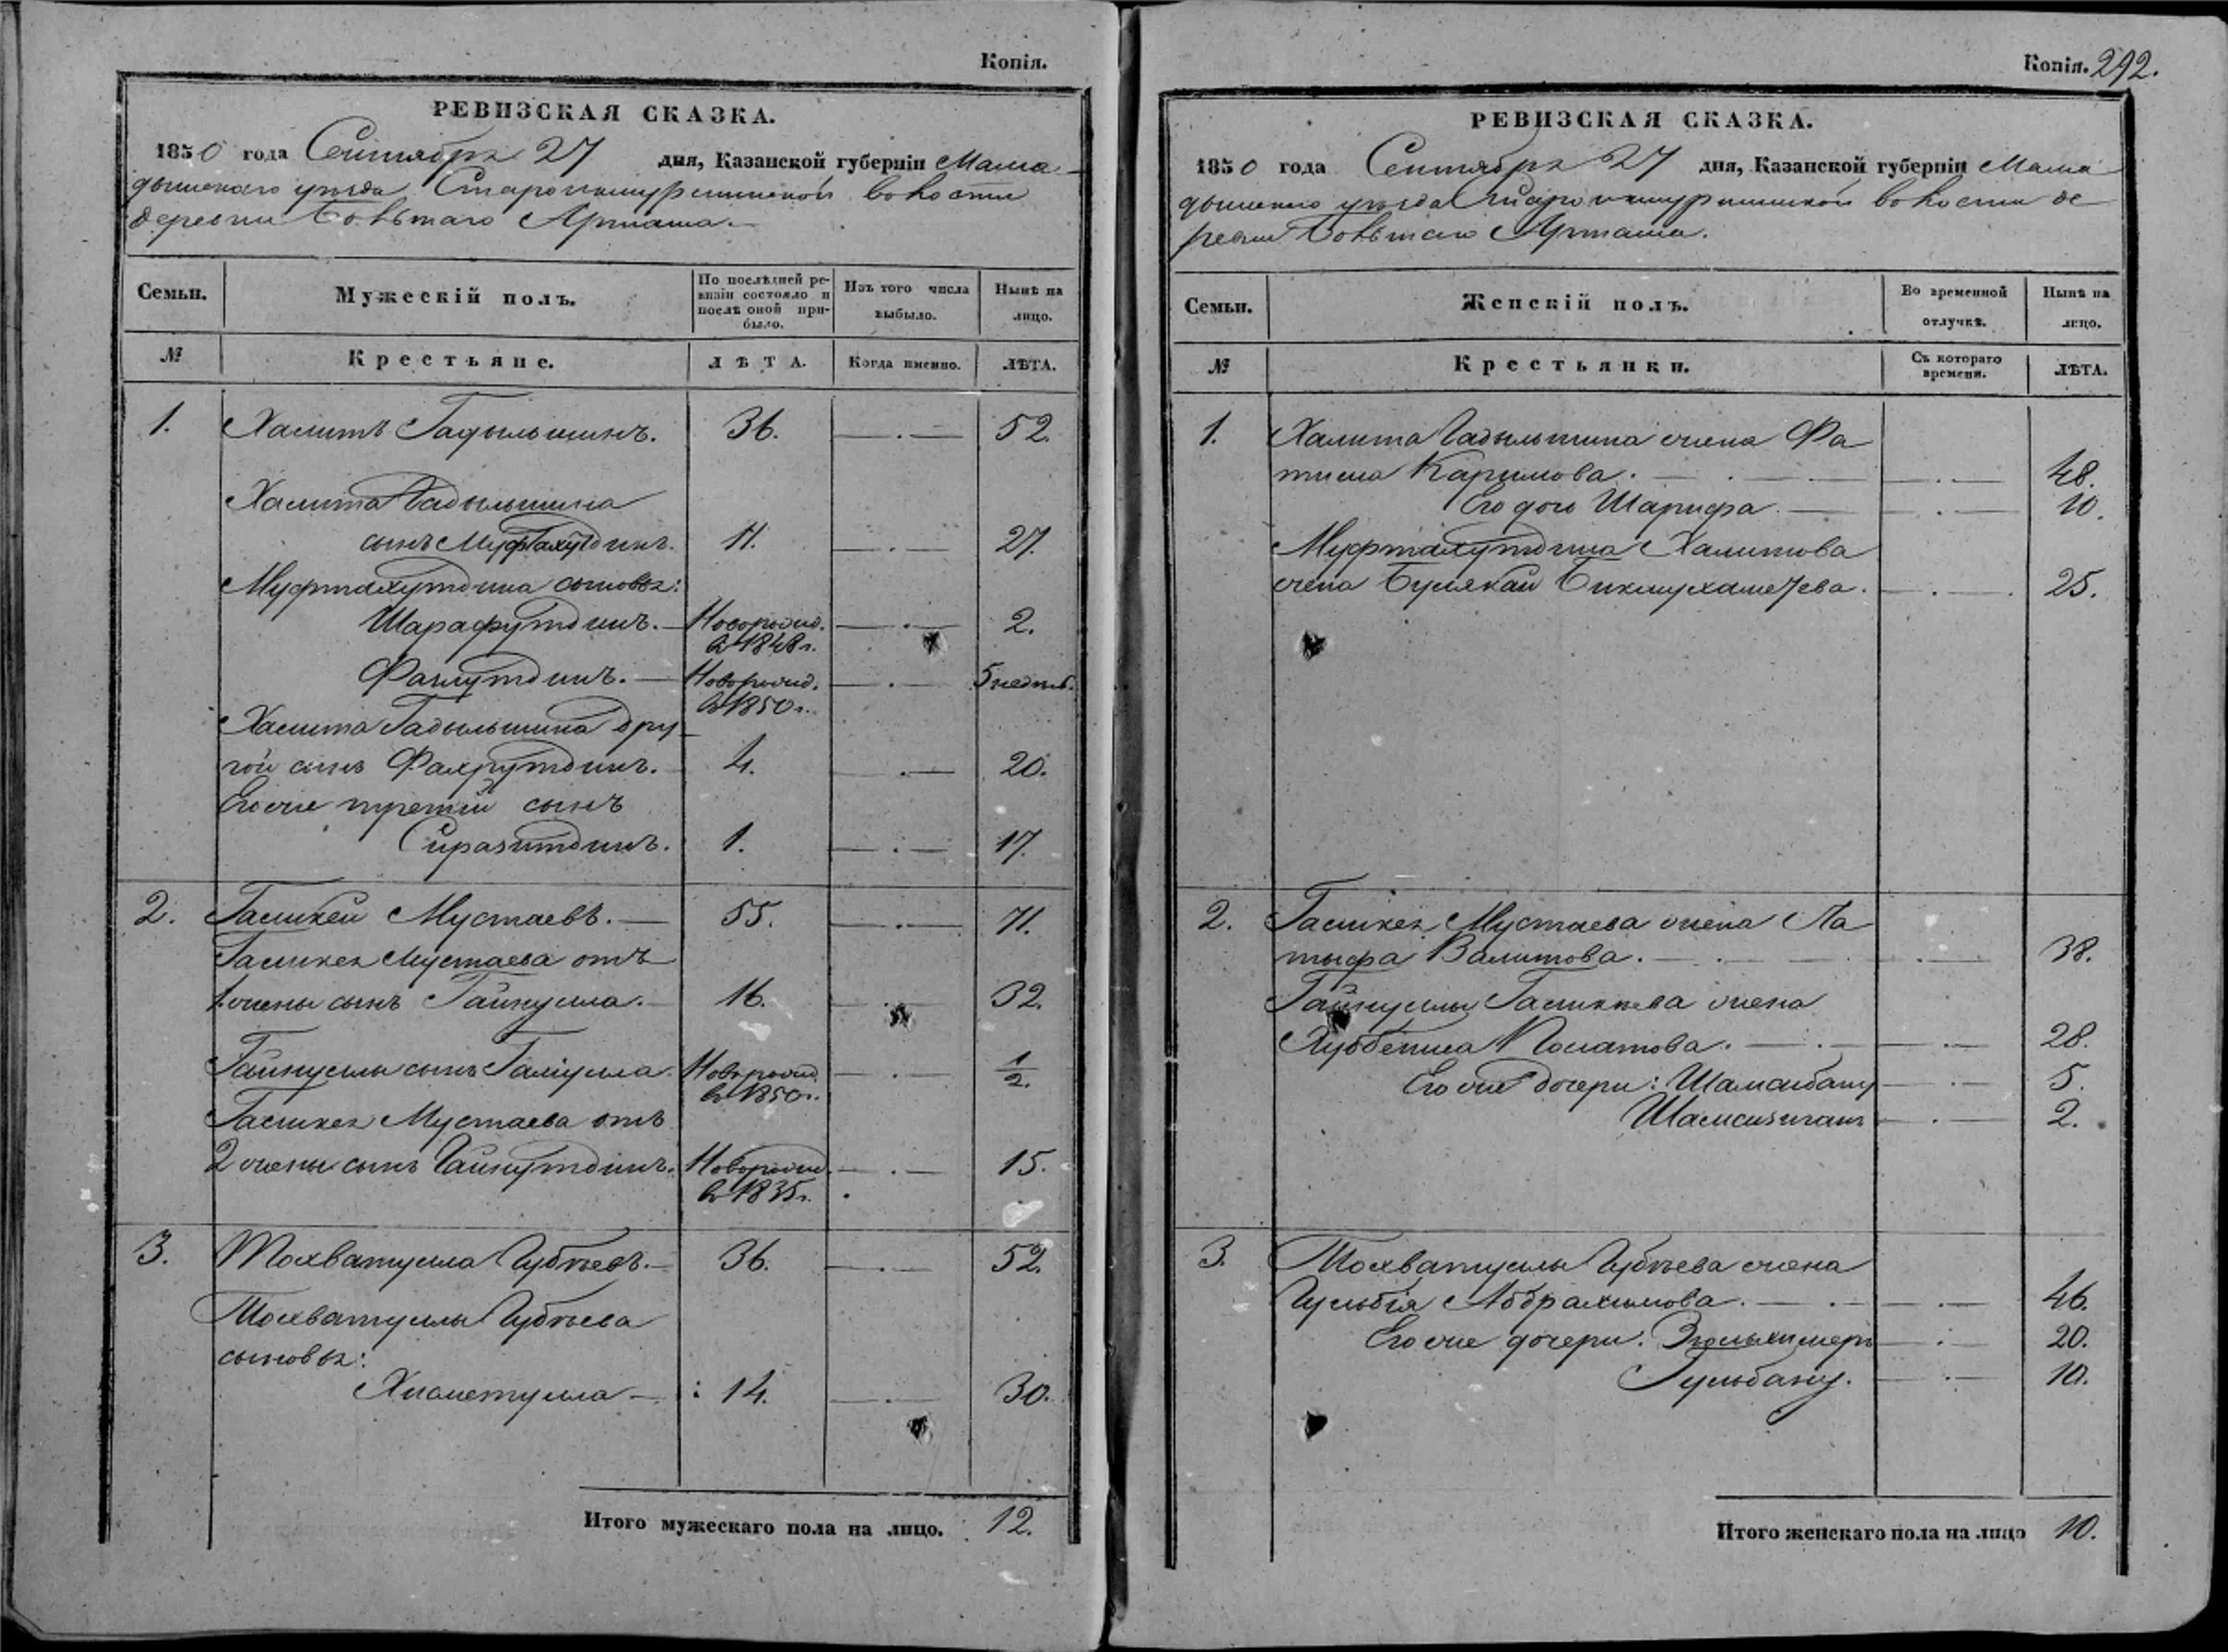 Копія.
РЕВИЗСКАЯ СКАЗКА.
1850 года Сентября 27 дня, Казанской губерніи Мама-
дышскаго уѣзда Староикшурминской волости
деревни Большаго Арташа.
Семьи. Мужескій полъ. По послѣдней ре-визіи состояло и послѣ оной при-было. Изъ того числа выбыло. Нынѣ на лицо.
№ Крестьяне. ЛѢТА. Когда именно. ЛѢТА.
1. Халитъ Гадыльшинъ. 36. 52.
Халита Гадыльшина
сынъ Муфтахутдинъ. 11. 27.
Муфтахутдина сыновья:
Шарафутдинъ. Новорожд. 2.
въ 1848 г.
Фазлутдинъ. Новорожд. 5 недѣль.
въ 1850 г.
Халита Гадыльшина дру
гой сынъ Фахрутдинъ. 4. 20.
Его же третій сынъ
Сиразитдинъ. 1. 17.
2. Галикей Мустаевъ. 55. 71.
Галикея Мустаева отъ
1 жены сынъ Гайнулла. 16. 32.
Гайнуллы сынъ Галіулла Новорожд. 1/2.
въ 1850 г.
Галикея Мустаева отъ
2 жены сынъ Гайнутдинъ. Новорожд. 15.
въ 1835 г.
3. Тохватулла Губѣевъ. 36. 52.
Тохватуллы Губѣева
сыновья:
Хисметулла 14. 30.
Итого мужескаго пола на лицо. 12.
Копія. 292.
РЕВИЗСКАЯ СКАЗКА.
1850 года Сентября 27 дня, Казанской губерніи Мама-
дышскаго уѣзда Староикшурминской волости де-
ревни Большаго Арташа.
Семьи. Женскій полъ. Во временной отлучкѣ. Нынѣ на лицо.
№ Крестьянки. Съ котораго времени. ЛѢТА.
1. Халита Гадыльшина жена Фа
тима Каримова. 48.
Его дочь Шарифа 10.
Муфтахутдина Халитова
жена Булякай Бикмухаметева. 25.
2. Галикея Мустаева жена Ла
тыфа Валитова. 38.
Гайнуллы Галикѣева жена
28.
Его же дочери: Шамсибану 5.
2.
3. Тохватуллы Губѣева жена
Гульбія Абдрахимова. 46.
Его же дочери: 20.
Гульбану. 10.
Итого женскаго пола на лицо 10.